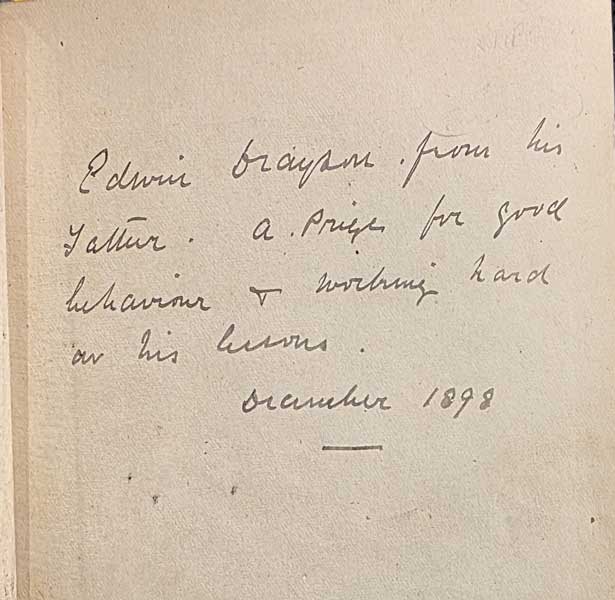 Edwin Drayson. from his
Father. A. Prize for good
behaviour & working hard
at his lessons.
December 1898